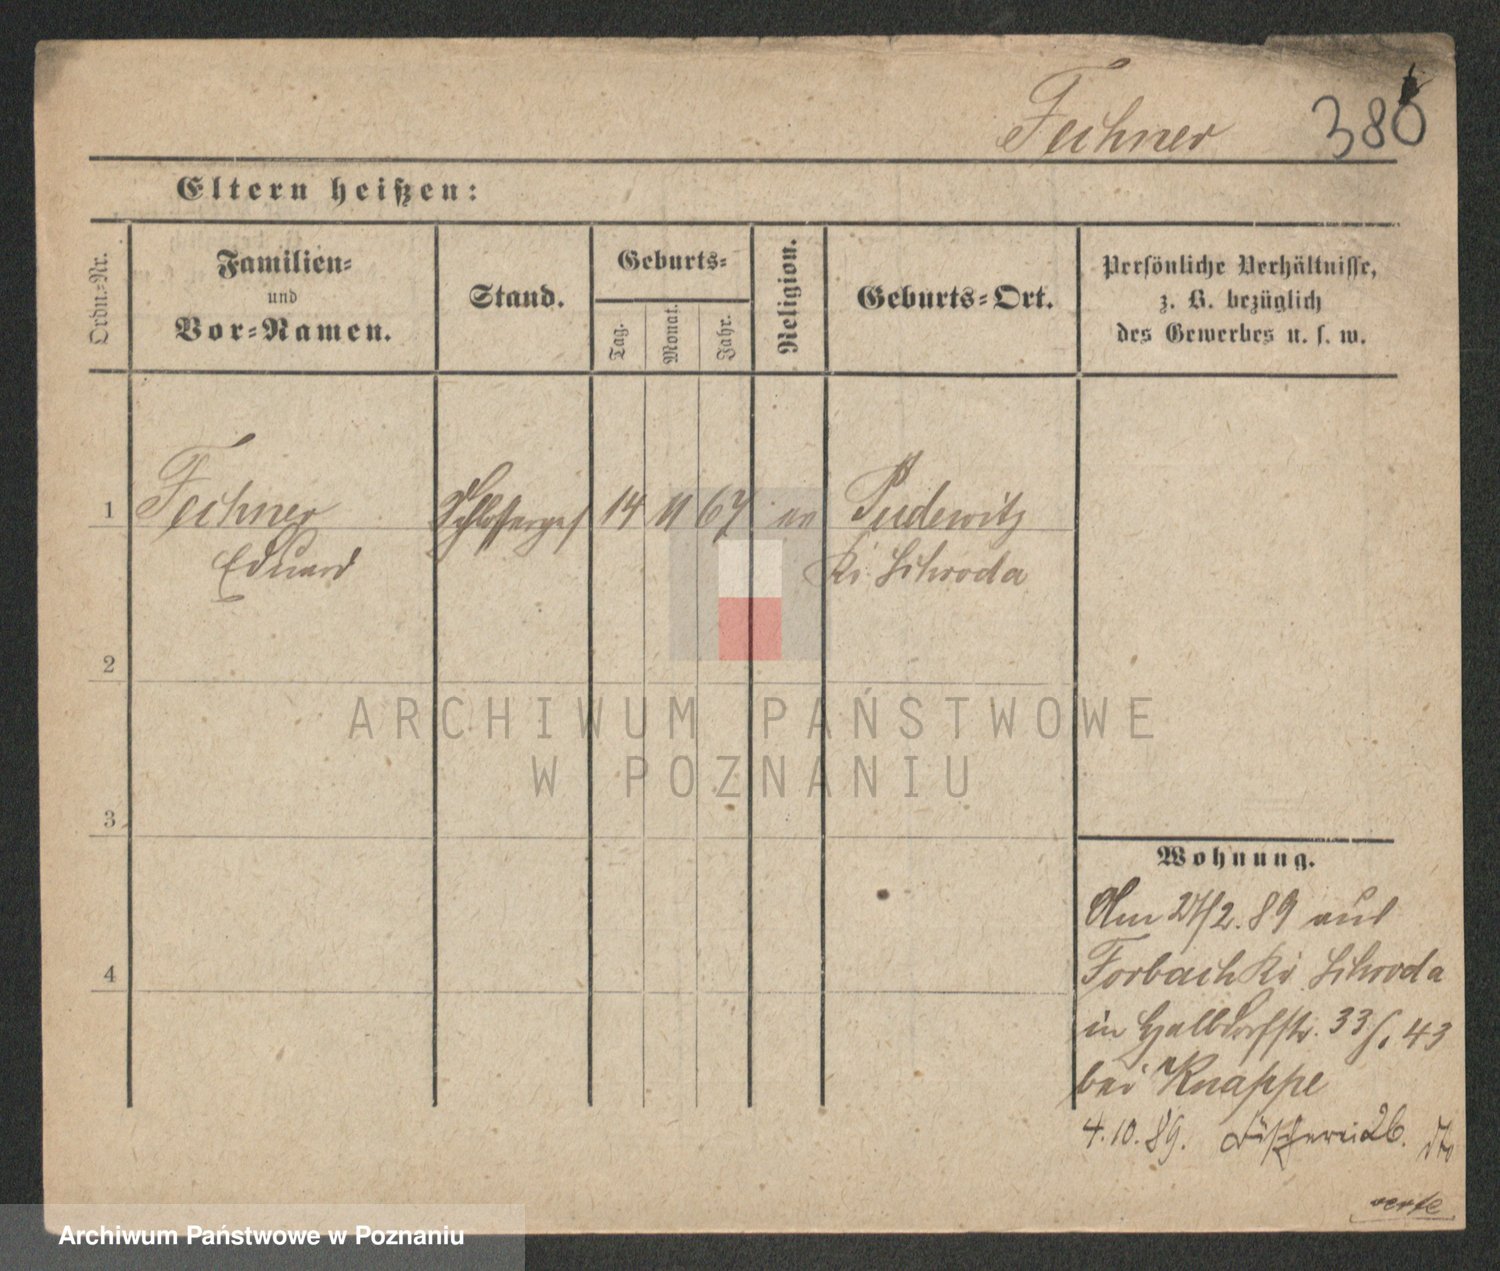 Fechner 380
Eltern heißen:
Ordn.-Nr.
Familien-
und
Vor-Namen.
Stand.
Geburts-
Tag.
Monat.
Jahr.
Religion.
Geburts-Ort.
Persönliche Verhältnisse,
z. B. bezüglich
des Gewerbes u. s. w.
1 Fechner Schlosserges 14 11 67 ev Pudewitz
Eduard Kr. Schroda
2
ARCHIWUM PAŃSTWOWE
W POZNANIU
3
Wohnung.
Am 27/2. 89 aus
4 Forbach Kr Schroda
in Halbdorfstr. 33 43
bei Knappe
4. 10. 89. Fischerei 26.
verte
Archiwum Państwowe w Poznaniu